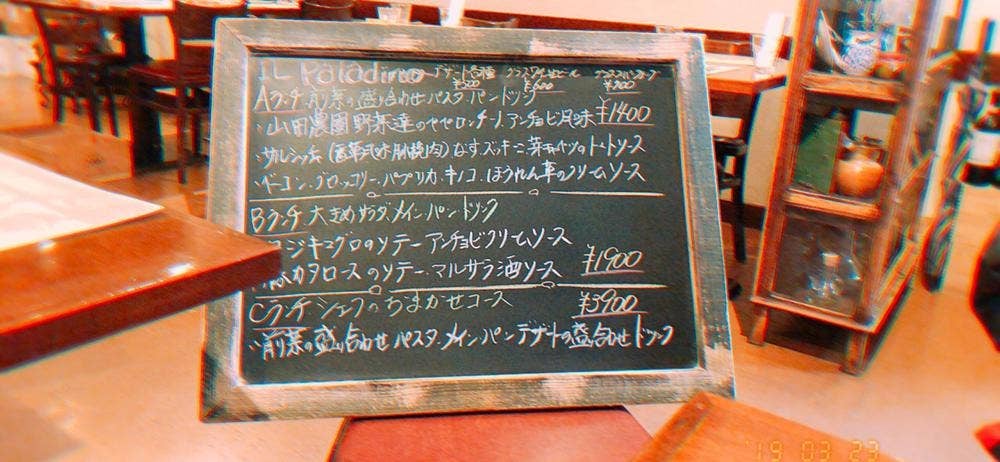 IL Paladino デザート各種 グラスワイン.ビール グラススパークリング
¥500 ¥700
Aランチ 前菜の盛合わせ パスタ.パン ドリンク
・山田農園野菜達のペペロンチーノ アンチョビ風味 ¥1400
・サルシッチャ(自家製 挽肉)なす.ズッキーニ 芽キャベツのトマトソース
・ベーコン.ブロッコリー.パプリカ.キノコ.ほうれん草のクリームソース
Bランチ 大きめサラダ メイン パン ドリンク
メジキマグロのソテー アンチョビクリームソース
豚カタロースのソテー.マルサラ酒ソース ¥1900
Cランチ シェフのおまかせコース ¥3900
・前菜の盛り合わせ パスタ.メイン パン デザートの盛合わせ ドリンク
'19 03 23